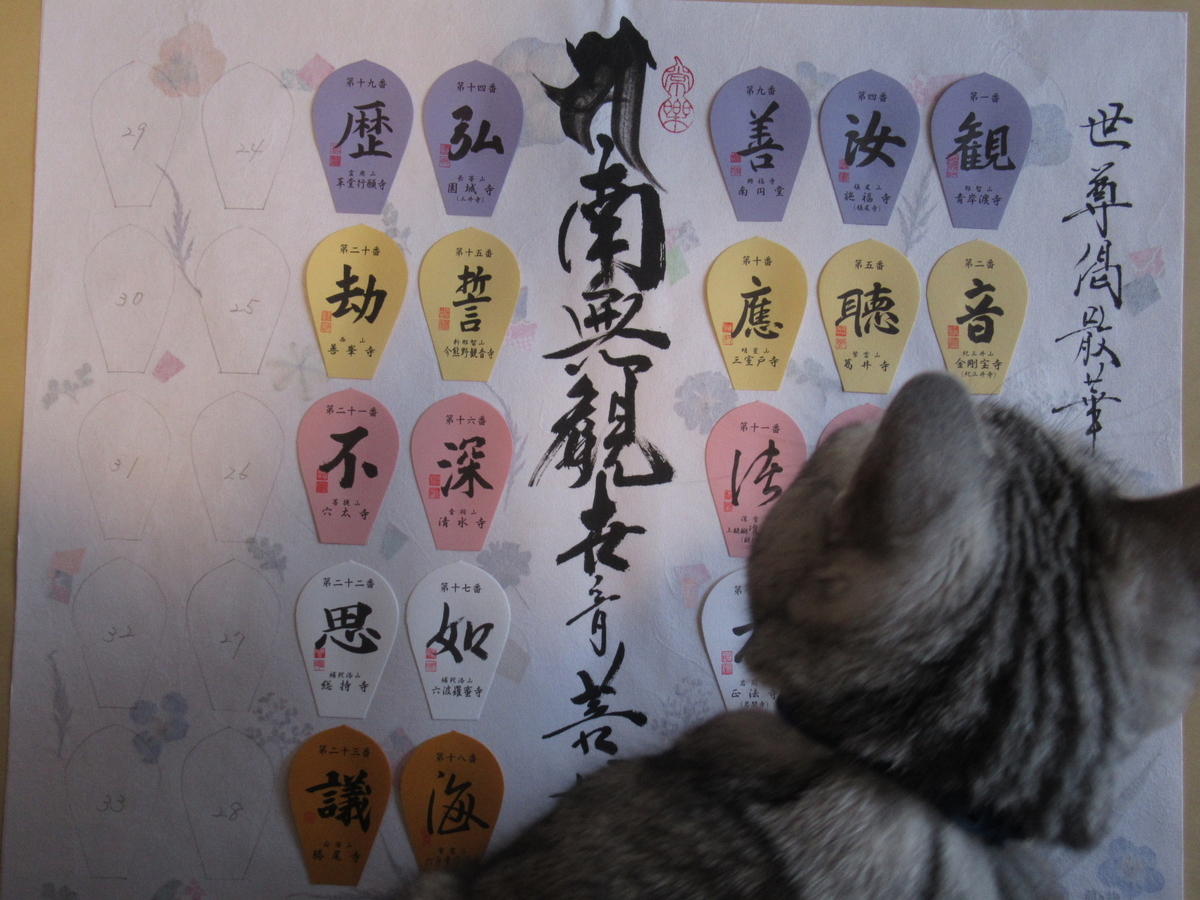 世尊偈最華
第一番
観
那智山
青岸渡寺
第二番
音
紀三井山
金剛宝寺
(紀三井寺)
第四番
汝
槇尾山
施福寺
(槇尾寺)
第五番
聴
紫雲山
葛井寺
第九番
善
興福寺
南円堂
第十番
應
明星山
三室戸寺
第十一番
正法寺
常樂
南無觀世音菩
第十四番
弘
長等山
園城寺
(三井寺)
第十五番
誓
新那智山
今熊野観音寺
第十六番
深
音羽山
清水寺
第十七番
如
補陀洛山
六波羅蜜寺
第十八番
海
第十九番
歴
霊麀山
革堂行願寺
第二十番
劫
西山
善峯寺
第二十一番
不
菩提山
穴太寺
第二十二番
思
補陀洛山
総持寺
第二十三番
議
勝尾寺
24
25
26
27
28
29
30
31
32
33